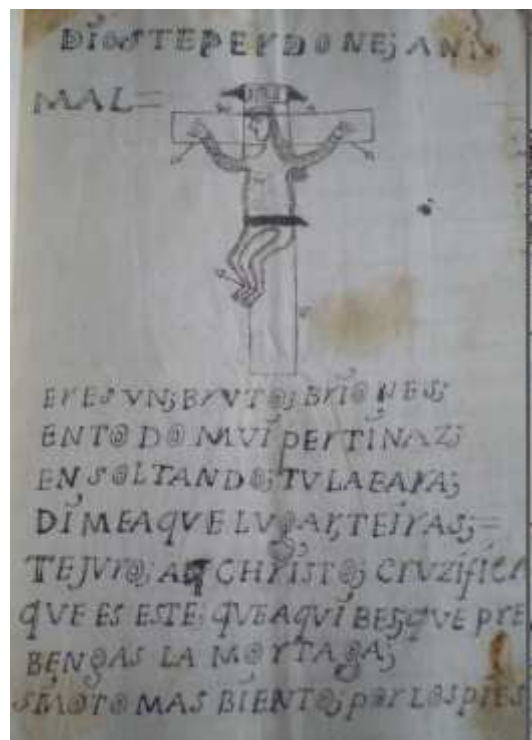 DIOS TE PERDONE; ANI
MAL=
ERES VN; BrVTO; BrIONES;
ENTODO MUI PERTINAZ;
EN SOLTANDO; TV LA
DIMEA QVE LUGAR; TE IrAS;=
TE JVrO; A CHrISTO; CrVZIFIC
QVE ES ESTE; QVE AQVI BES; QVE PrE
BENGAS LA MOrTAGA;
MAS BIENTO; POr LOS PIES